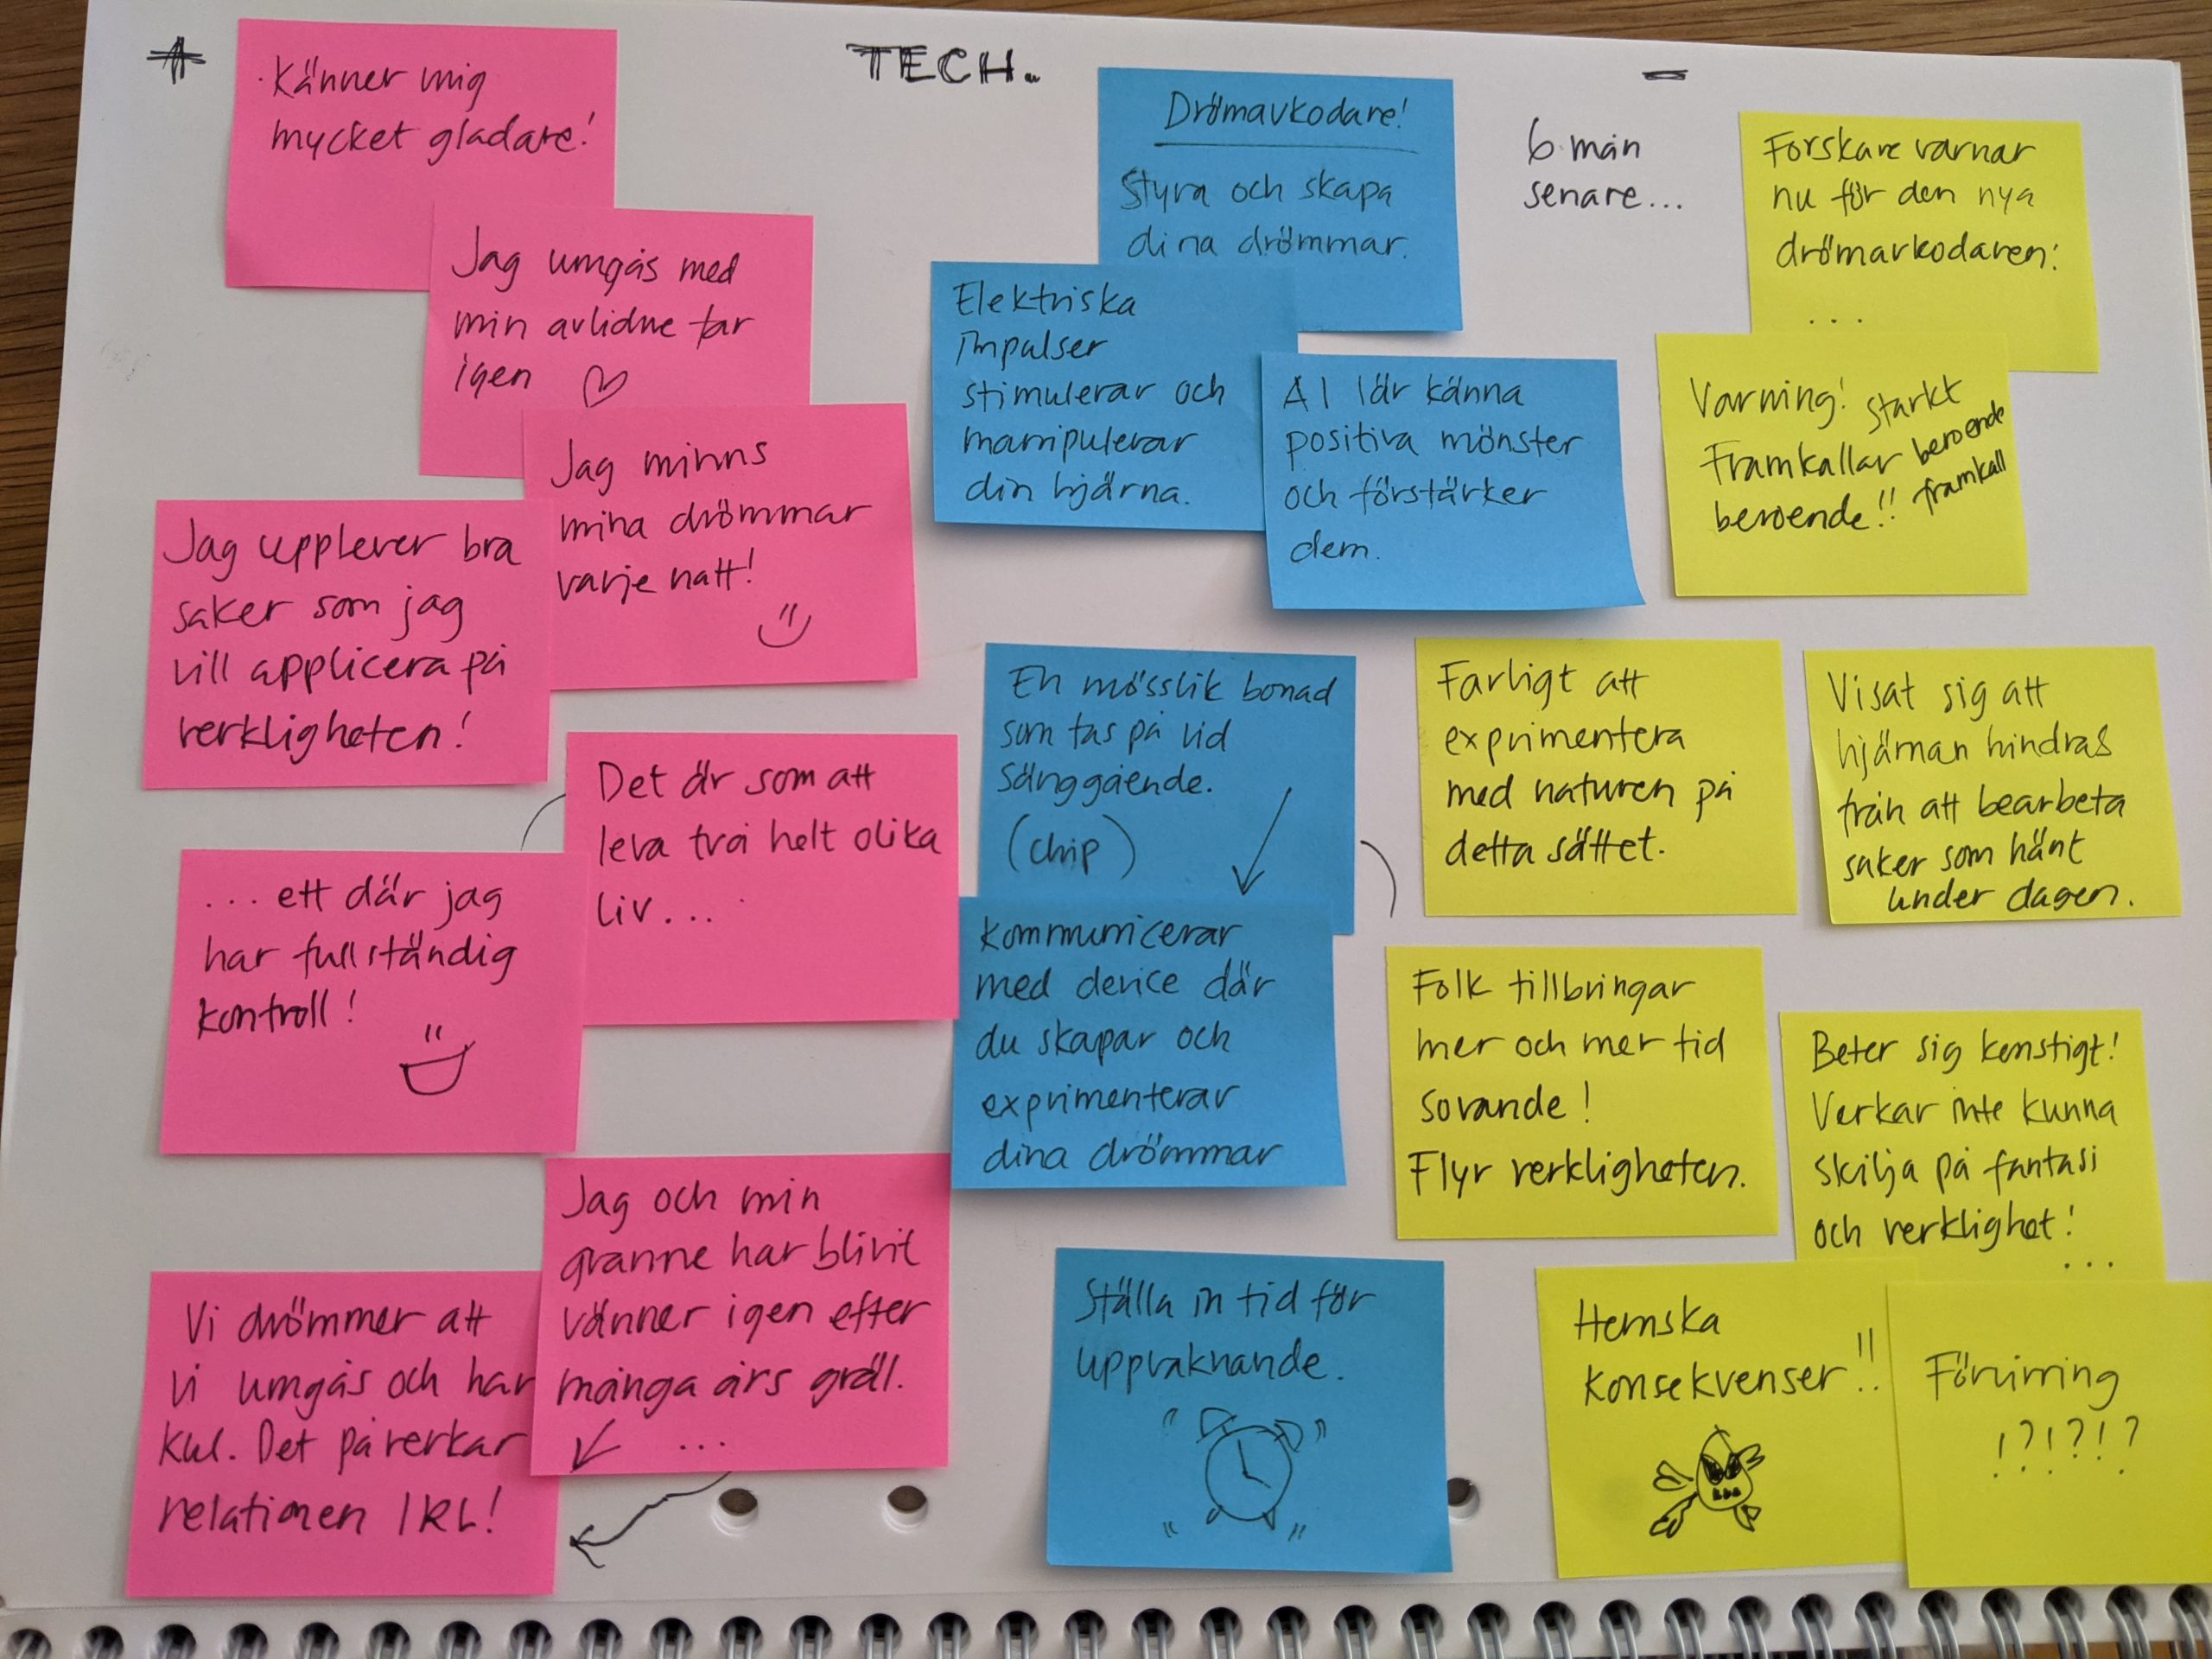 +
TECH.
-
Känner mig
mycket gladare!
Jag umgås med
min avlidne far
igen
Jag minns
mina drömmar
varje natt!
Jag upplever bra
saker som jag
vill applicera på
verkligheten!
Det är som att
leva två helt olika
liv...
...ett där jag
har fullständig
kontroll!
Jag och min
granne har blivit
vänner igen efter
många års gräl.
...
Vi drömmer att
vi umgås och har
kul. Det påverkar
relationen IRL!
Drömavkodare!
Styra och skapa
dina drömmar.
Elektriska
impulser
stimulerar och
manipulerar
din hjärna.
AI lär känna
positiva mönster
och förstärker
dem.
En mösslik bonad
som tas på vid
sänggående.
(chip)
kommunicerar
med device där
du skapar och
exprimenterar
dina drömmar
Ställa in tid för
uppvaknande.
6 mån
senare...
Forskare varnar
nu för den nya
drömavkodaren:
...
Varning! Starkt
Framkallar beroende
beroende!! framkall
Farligt att
exprimentera
med naturen på
detta sättet.
Visat sig att
hjärnan hindras
från att bearbeta
saker som hänt
under dagen.
Folk tillbringar
mer och mer tid
sovande!
Flyr verkligheten.
Beter sig konstigt!
Verkar inte kunna
skilja på fantasi
och verklighet!
...
Hemska
konsekvenser!!
Förvirring
!?!?!?